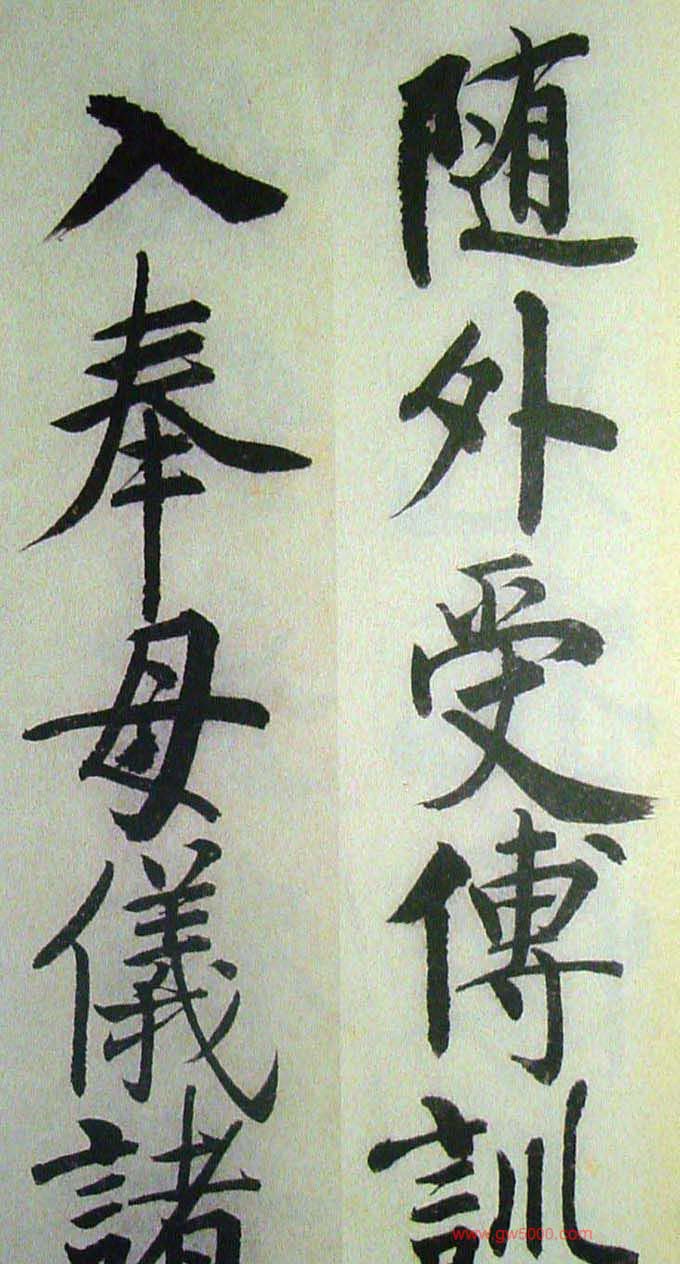 随外受傅訓
入奉母儀諸
www.gw5000.com